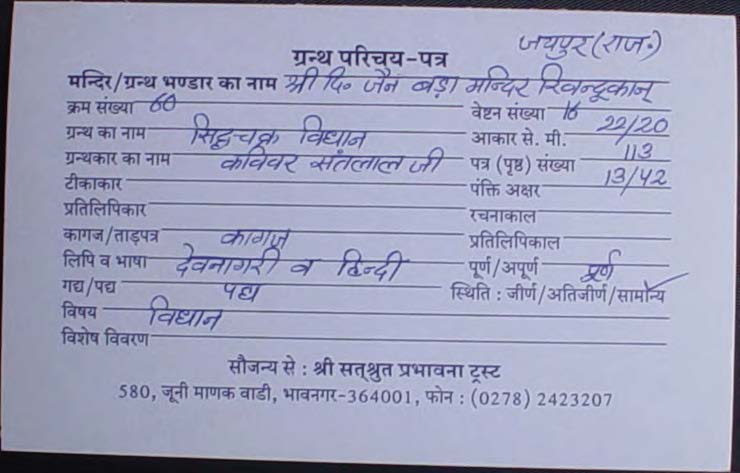 जयपुर(राज॰)
ग्रन्थ परिचय-पत्र
मन्दिर/ग्रन्थ भण्डार का नाम श्री दि॰ जैन बड़ा मन्दिर खिन्दूकान्
क्रम संख्या 60 वेष्टन संख्या 16
ग्रन्थ का नाम सिद्धचक्र विधान आकार से. मी. 22/20
ग्रन्थकार का नाम कविवर संतलाल जी पत्र (पृष्ठ) संख्या 113
टीकाकार पंक्ति अक्षर 13/42
प्रतिलिपिकार रचनाकाल
कागज/ताड़पत्र कागज प्रतिलिपिकाल
लिपि व भाषा देवनागरी व हिन्दी पूर्ण/अपूर्ण पूर्ण
गद्य/पद्य पद्य स्थिति : जीर्ण/अतिजीर्ण/सामान्य
विषय विधान
विशेष विवरण
सौजन्य से : श्री सत्श्रुत प्रभावना ट्रस्ट
580, जूनी माणक वाडी, भावनगर-364001, फोन : (0278) 2423207